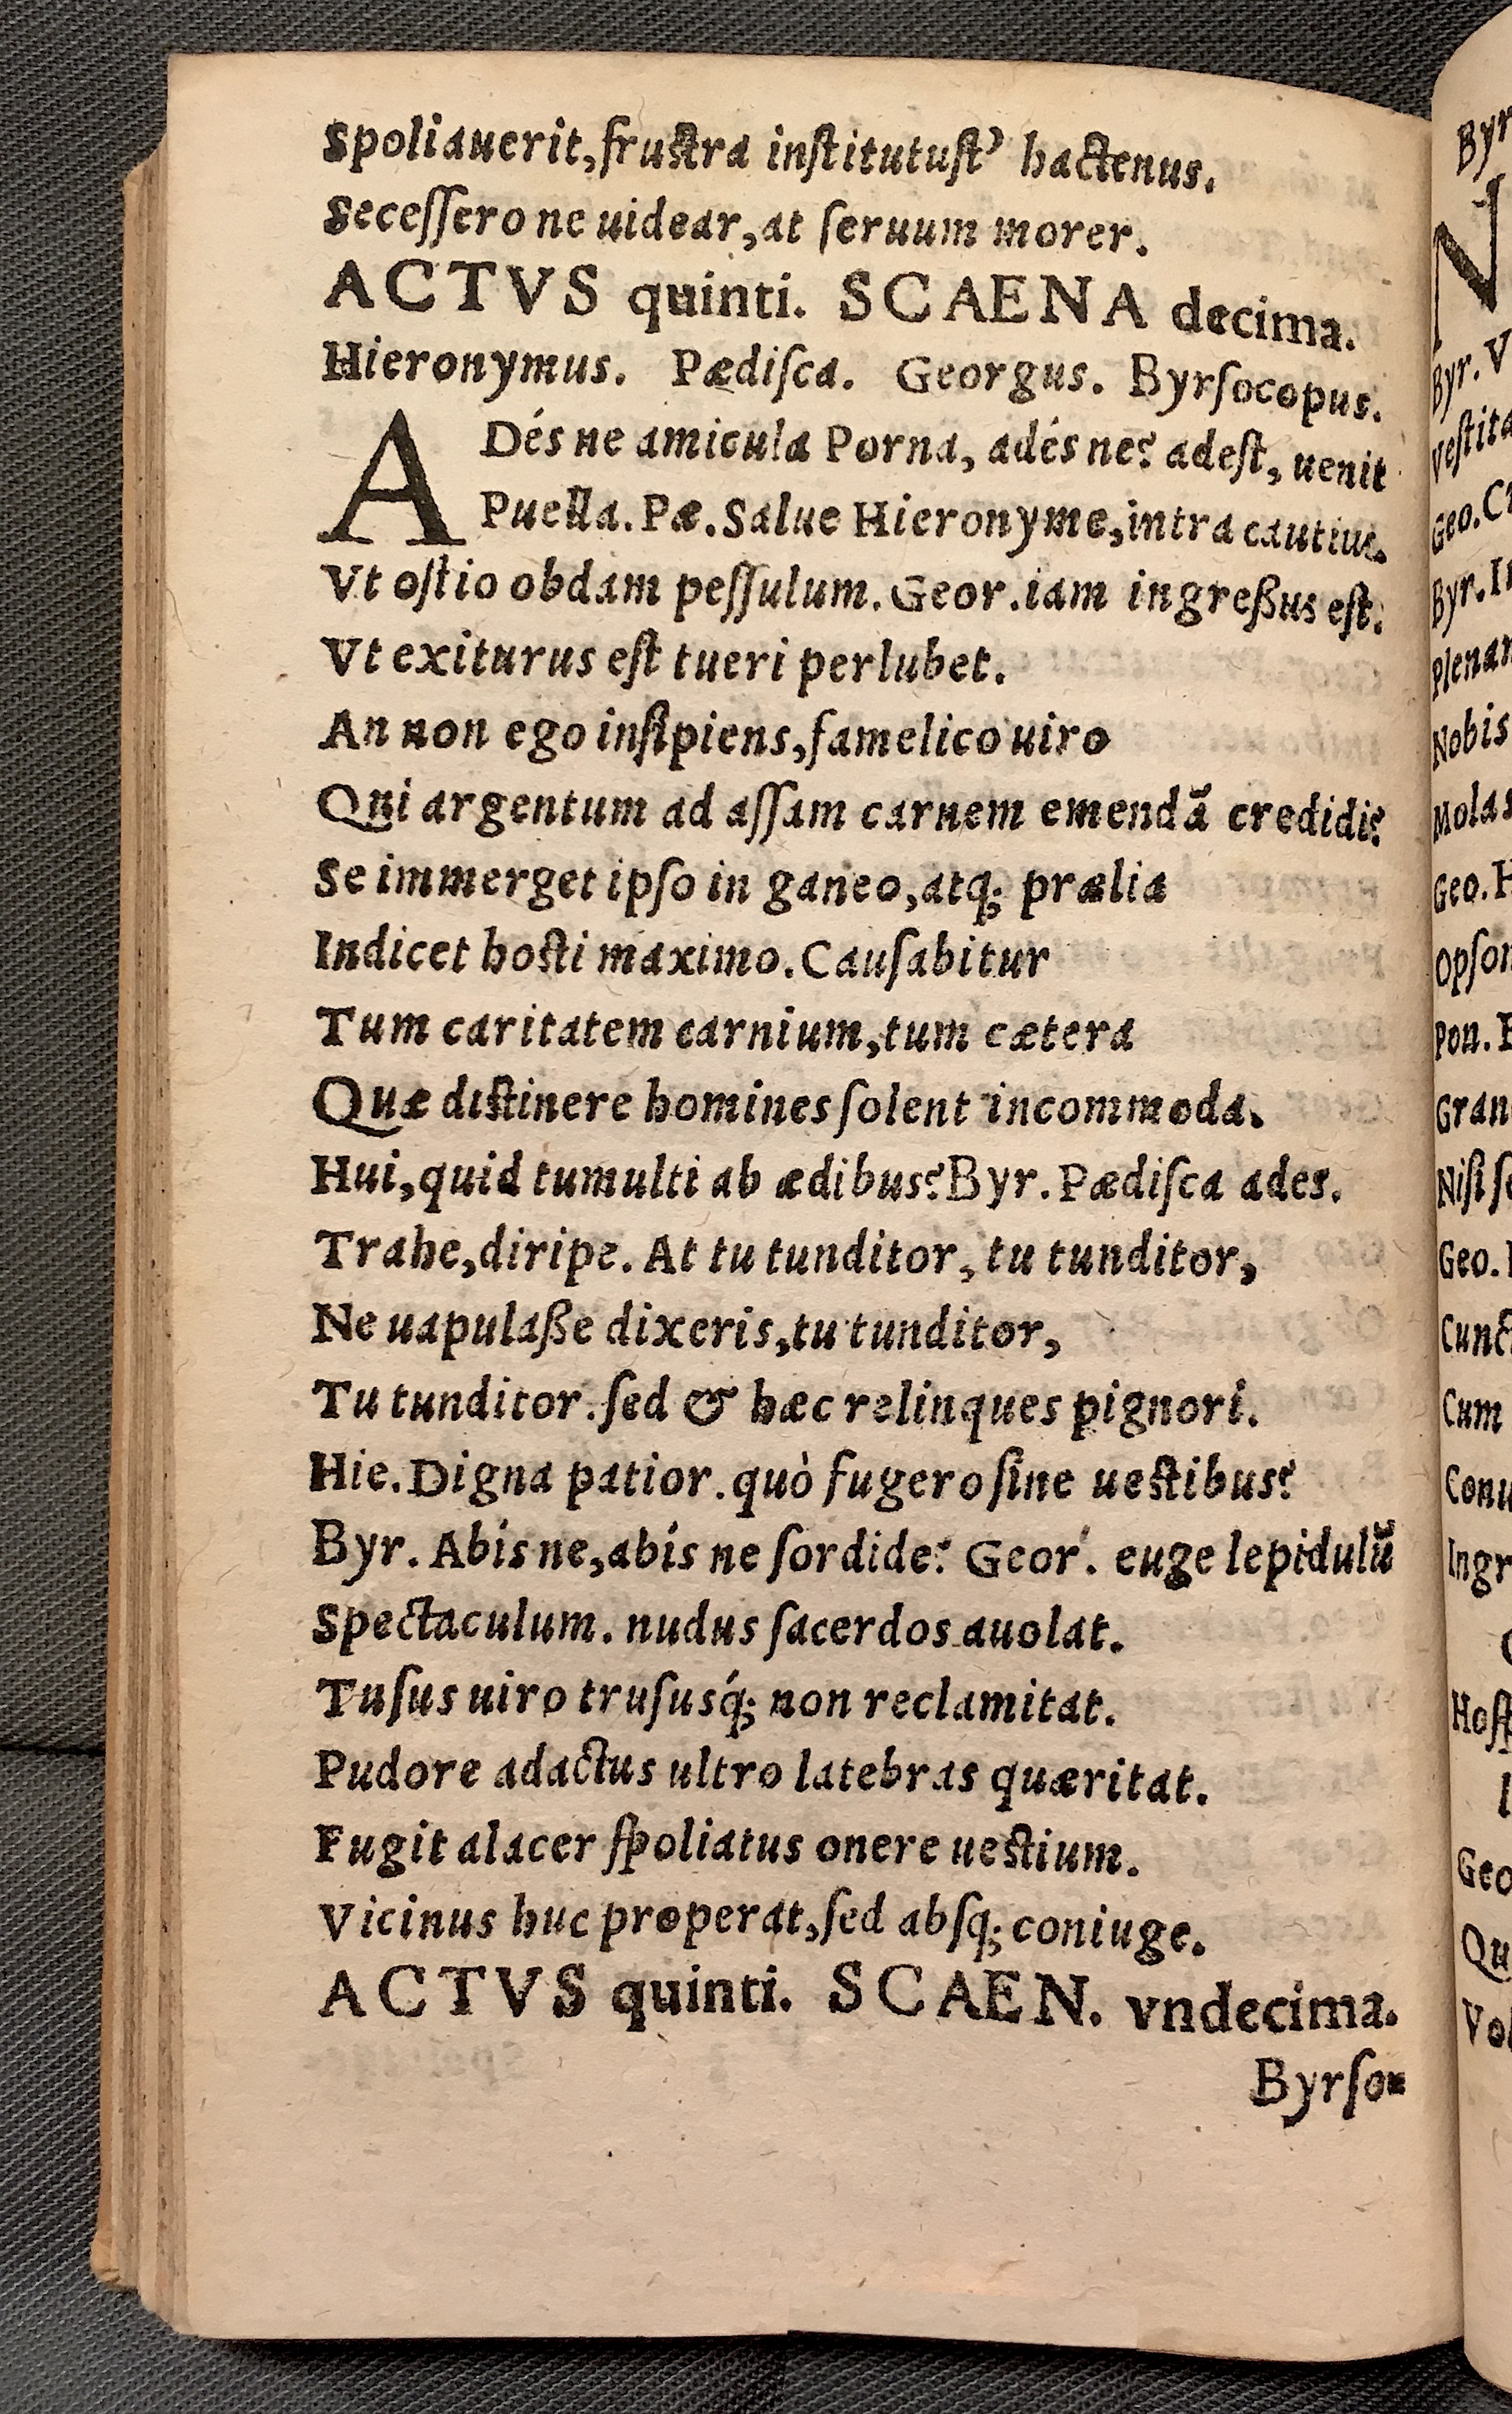 Spoliauerit, frustra institutust' hactenus.
Secessero ne uidear, at seruum morer.
ACTVS quinti. SCAENA decima.
Hieronymus. Pædisca. Georgus. Byrsocopus.
ADés ne amicula Porna, adés ne? adest, uenit
Puella. Pæ. Salue Hieronyme, intra cautius.
Vt ostio obdam pessulum. Geor. iam ingreßus est:
Vt exiturus est tueri perlubet.
An non ego insipiens, famelico uiro
Qui argentum ad assam carnem emendã credidi?
Se immerget ipso in ganeo, atq; prælia
Indicet hosti maximo. Causabitur
Tum caritatem carnium, tum cætera
Quæ distinere homines solent incommoda.
Hui, quid tumulti ab ædibus? Byr. Pædisca ades.
Trahe, diripe. At tu tunditor, tu tunditor,
Ne uapulaße dixeris, tu tunditor,
Tu tunditor. sed & hæc relinques pignori.
Hie. Digna patior. quò fugero sine uestibus?
Byr. Abis ne, abis ne sordide? Geor. euge lepidulũ
Spectaculum. nudus sacerdos auolat.
Tusus uiro trususq́; non reclamitat.
Pudore adactus ultro latebras quæritat.
Fugit alacer spoliatus onere uestium.
Vicinus huc properat, sed absq; coniuge.
ACTVS quinti. SCAEN. vndecima.
Byrso-
Byr.
N
Byr. V
Geo.
Byr.
Nobis
Molas
Geo. H
Pon.
Geo.
Cum
Geo